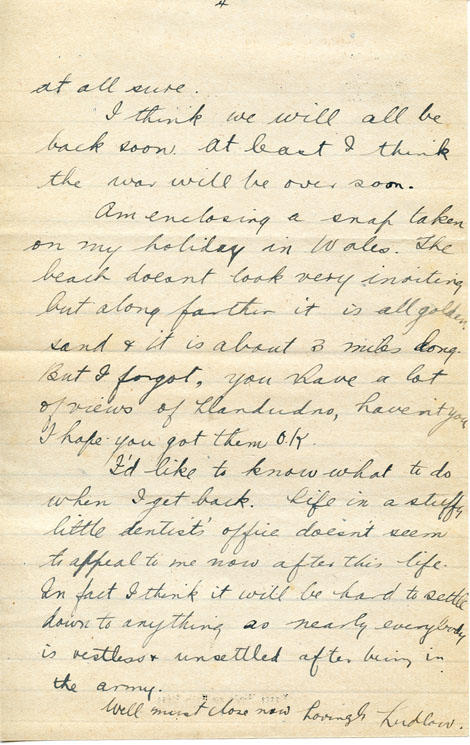 4
at all sure.
I think we will all be
back soon. At least I think
the war will be over soon.
Am enclosing a snap taken
on my holiday in Wales. The
beach doesnt look very inviting
but along farther it is all golden
sand & it is about 3 miles long.
But I forgot, you have a lot
of views of Llandudno, havent you
I hope you got them O.K.
I'd like to know what to do
when I get back. Life in a stuffy
little dentists' office doesnt seem
to appeal to me now after this life.
In fact I think it will be hard to settle
down to anything as nearly everybody
is restless & unsettled after being in
the army.
Well must close now lovingly Ludlow.